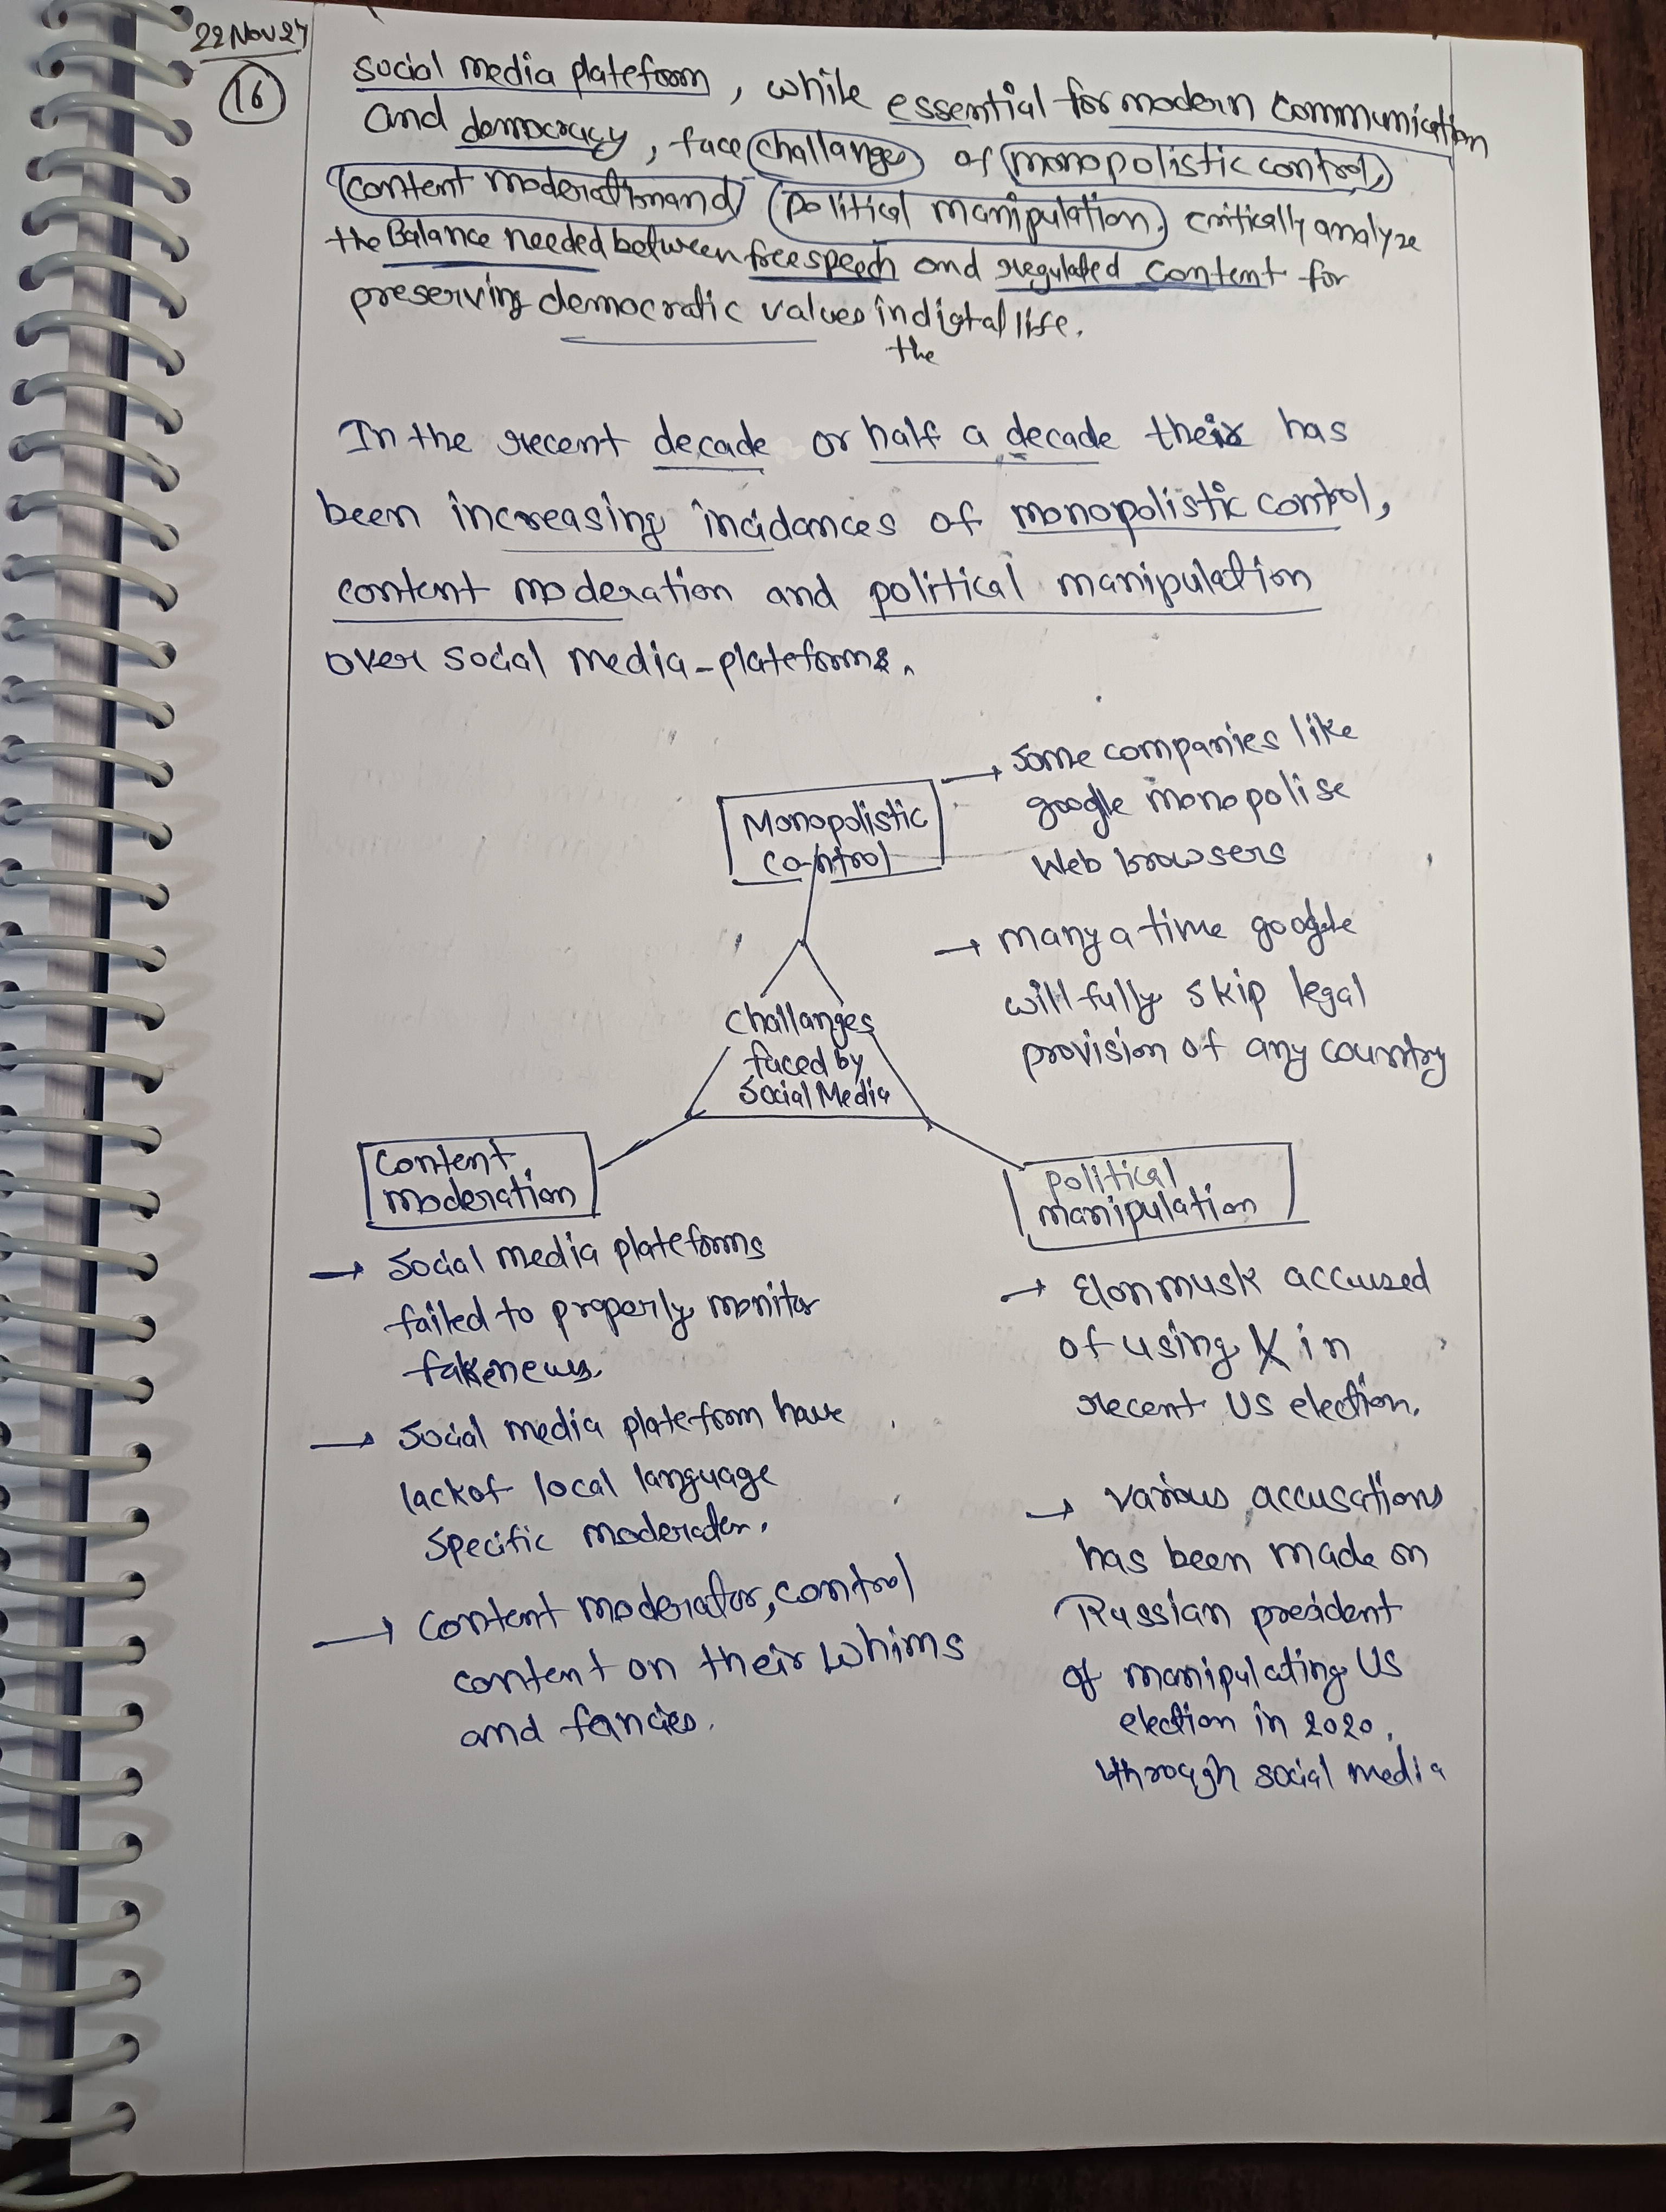 22 Nov 24
16
social media plateform, while essential for modern communication
and democracy, face challanges of monopolistic control,
content moderation and political manipulation. critically analyze
the Balance needed between free speech and regulated content for
preserving democratic values in digtal life.
the
In the recent decade or half a decade their has
been increasing incidances of monopolistic control,
content moderation and political manipulation
over social media-plateforms.
Monopolistic
control
→ some companies like
google monopolise
Web browsers
→ many a time google
willfully skip legal
provision of any country
challanges
faced by
social Media
content
moderation
→ social media plateforms
failed to properly monitor
fakenews.
→ social media plateform have
lack of local language
specific moderator.
→ content moderator, control
content on their whims
and fancies.
political
manipulation
→ Elon musk accused
of using X in
recent US election.
→ various accusations
has been made on
Russian president
of manipulating US
election in 2020.
through social media